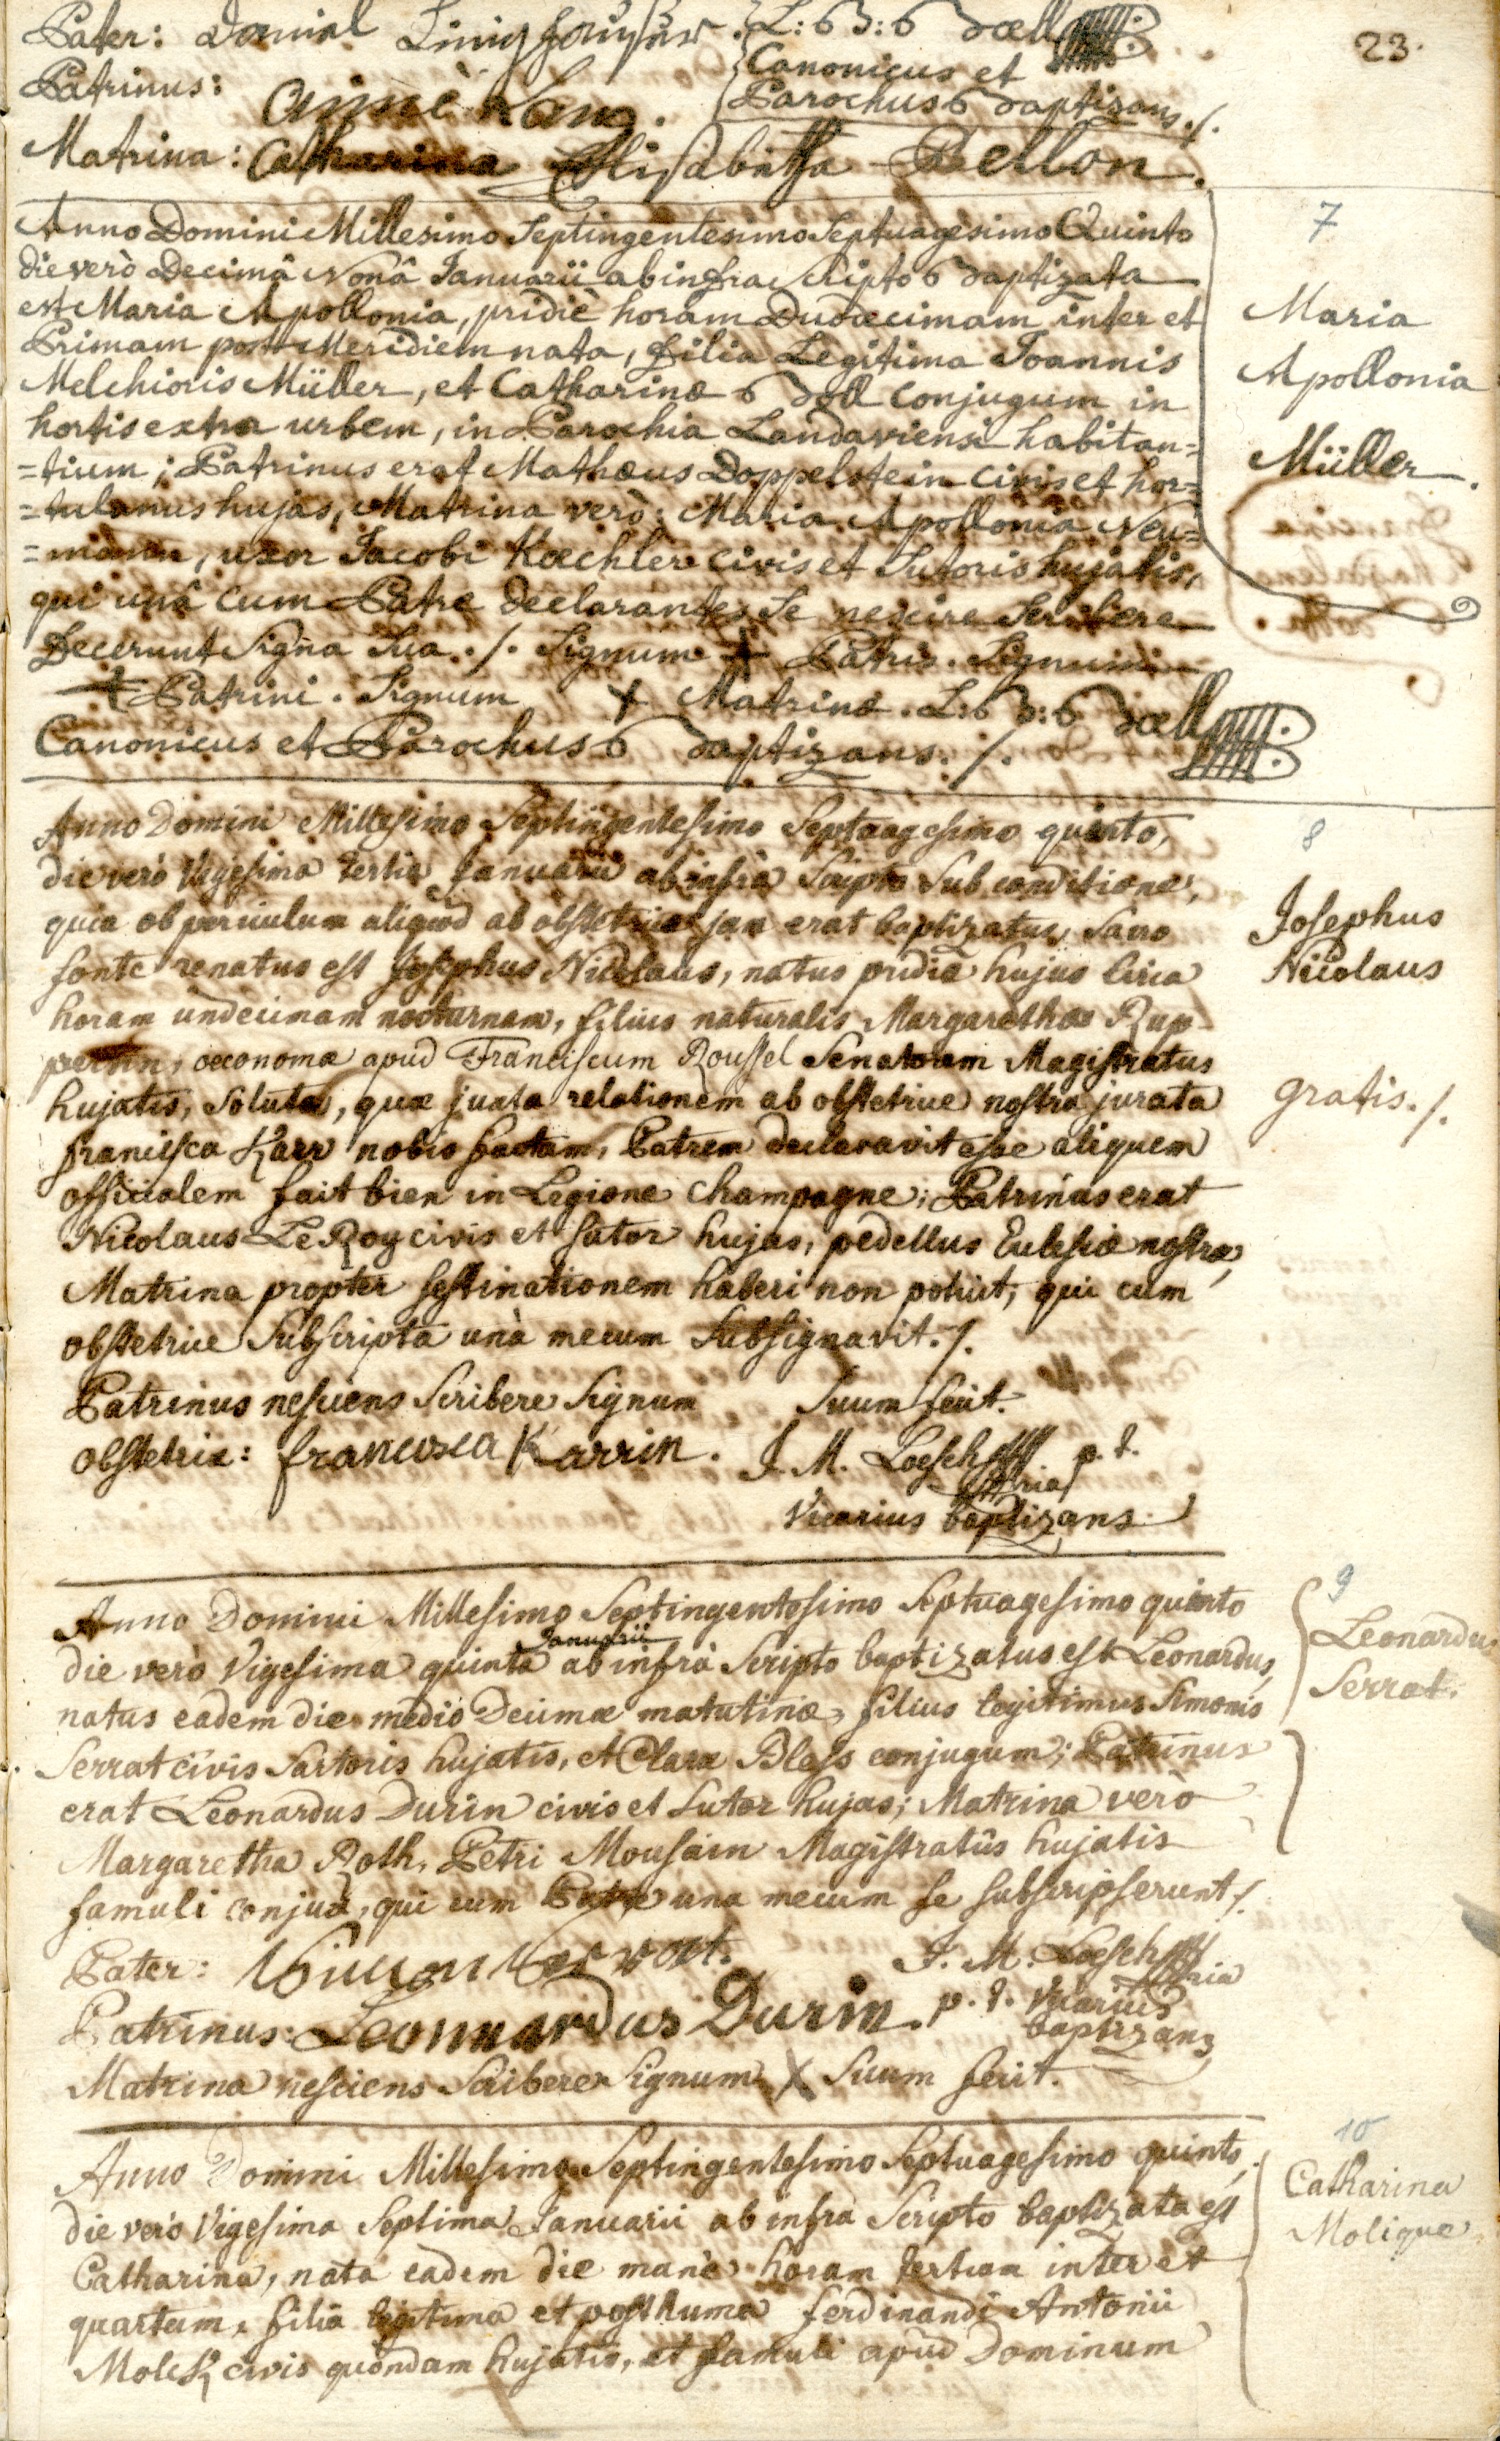 23.
Pater: Daniel
L: B: Boell
Canonicus et
Patrinus:
Parochus Baptizans ./.
Matrina: Catharina Elisabetha Bellon.
Anno Domini Millesimo Septingentesimo Septuagesimo Quinto
die verò Decimâ Nonâ Januarii ab infra Scripto Baptizata
est Maria Apollonia, pridiè horam Duodecimam inter et
Primam post Meridiem nata, filia Legitima Joannis
Melchioris Müller, et Catharinæ Boll Conjugum in
hortis extra urbem, in Parochia Landaviensi habitan=
=tium; Patrinus erat Mathæus Doppelstein Civis et hor=
=tulanus hujas, Matrina verò: Maria Apollonia Neu=
=mann, uxor Jacobi Kœchler civis et Sutoris hujatis,
qui unâ cum Patre declarantes se nescire Scribere
Decerunt Signa Sua ./. Signum + Patris. Signum
+ Patrini. Signum + Matrinæ. L: B: Boell
Canonicus et Parochus Baptizans ./.
7
Maria
Apollonia
Müller.
Anno Domini Millesimo Septingentesimo Septuagesimo quinto,
die verò Vigesima tertia Januarii ab infrà Scripto Sub conditione,
quia ob periculum aliquod ab obstetrice jam erat baptizatus, Sacro
fonte renatus est Josephus Nicolaus, natus pridie hujus circa
horam undecimam nocturnam, filius naturalis Margarethæ Rup=
pertin, œconomæ apud Franciscum Roussel Senatorem Magistratus
hujatis, Solutæ, quæ juxta relationem ab obstetrice nostra jurata
francisca Karr nobis factam, Patrem declaravit esse aliquem
officialem fait bien in Legione Champagne; Patrinus erat
Nicolaus Le Roy civis et sutor hujas, pedellus Ecclesiæ nostræ,
Matrina propter festinationem haberi non potuit, qui cum
obstetrice Subscripta unà mecum Subsignavit ./.
Patrinus nesciens Scribere Signum Suum fecit.
Obstetrix: francisca Karrin. J. M. Loesch p. t.
Vicarius baptizans
8
Josephus
Nicolaus
gratis ./.
Anno Domini Millesimo Septingentesimo Septuagesimo quinto
Januarii
die verò Vigesima quinta ab infrà Scripto baptizatus est Leonardus,
natus eadem die mediò Decimæ matutinæ, filius legitimus Simonis
Serrat civis Sartoris hujatis, et Claræ Bless conjugum; Patrinus
erat Leonardus Durin civis et Sutor hujas; Matrina verò
Margaretha Roth, Petri Mousain Magistratûs hujatis
famuli conjux, qui cum Patre una mecum se subscripserunt ./.
Pater: Simon Serrat. J. M. Loesch
Patrinus: Leonnardus Durin. p. t. Vicarius
baptizans
Matrina nesciens Scribere Signum X Suum fecit.
9
Leonardus
Serrat.
Anno Domini Millesimo Septingentesimo Septuagesimo quinto,
die verò Vigesima Septima Januarii ab infrà Scripto baptizata est
Catharina, nata eadem die manè horam tertiam inter et
quartam, filia legitima et posthuma ferdinandi Antonii
civis quondam hujatis, et famuli apud Dominum
10
Catharina
Molique